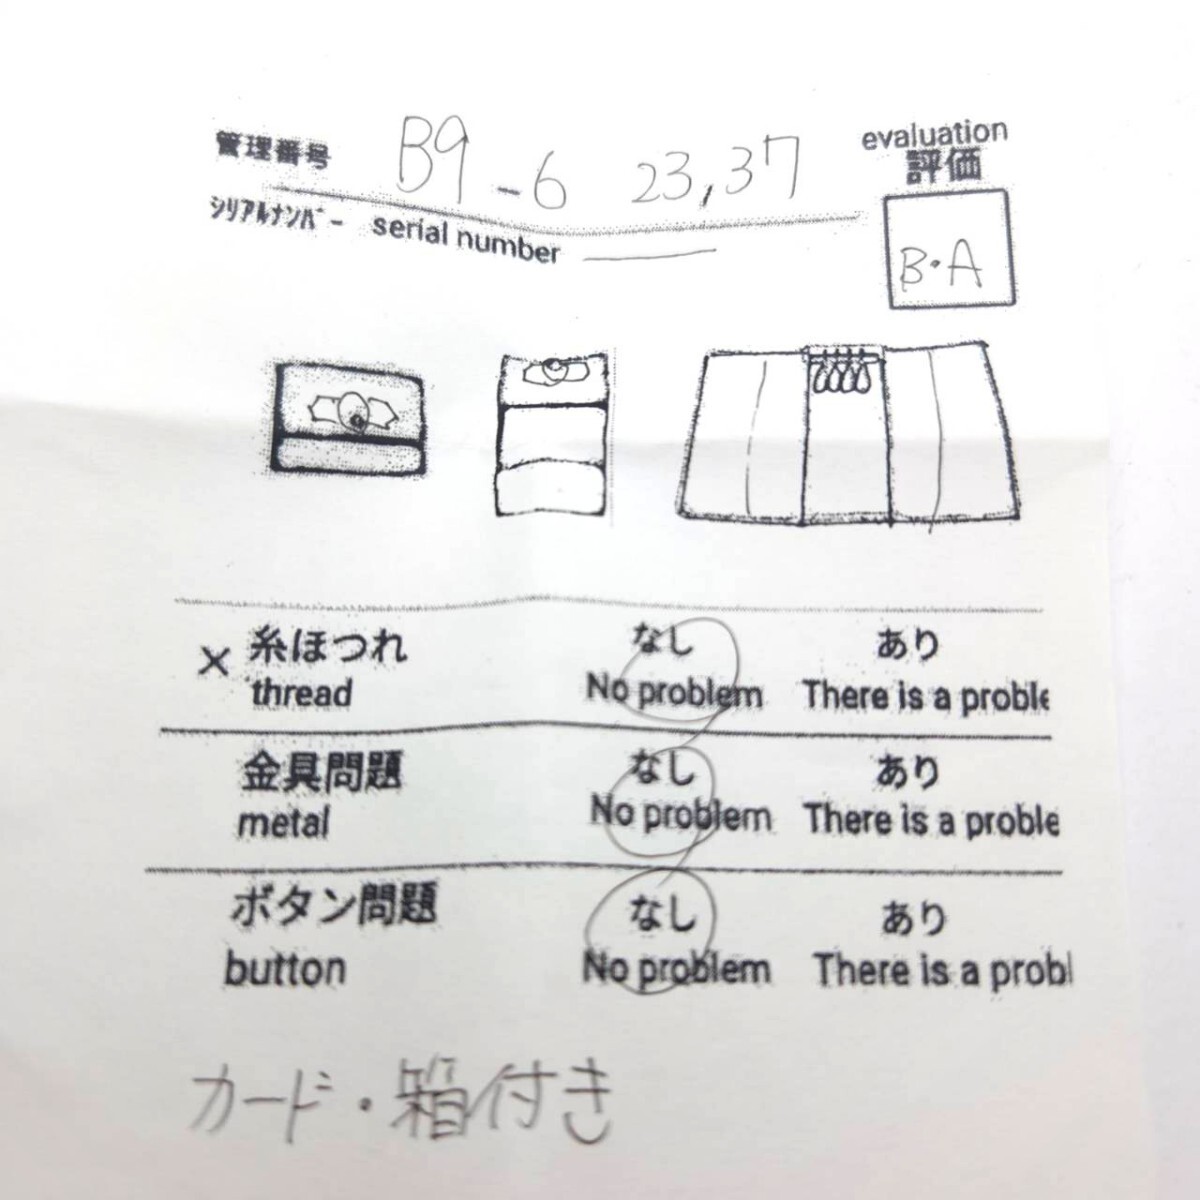 管理番号 B9-6 23,37
シリアルナンバー serial number
evaluation
評価
B・A
× 糸ほつれ なし あり
thread No problem There is a proble
金具問題 なし あり
metal No problem There is a proble
ボタン問題 なし あり
button No problem There is a probl
カード・箱付き